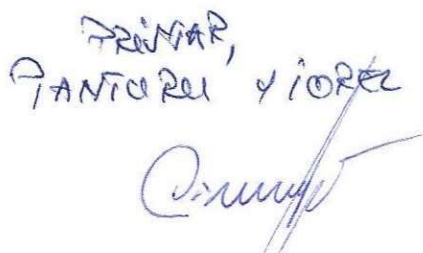 PRIMAR,
PANTURU VIOREL